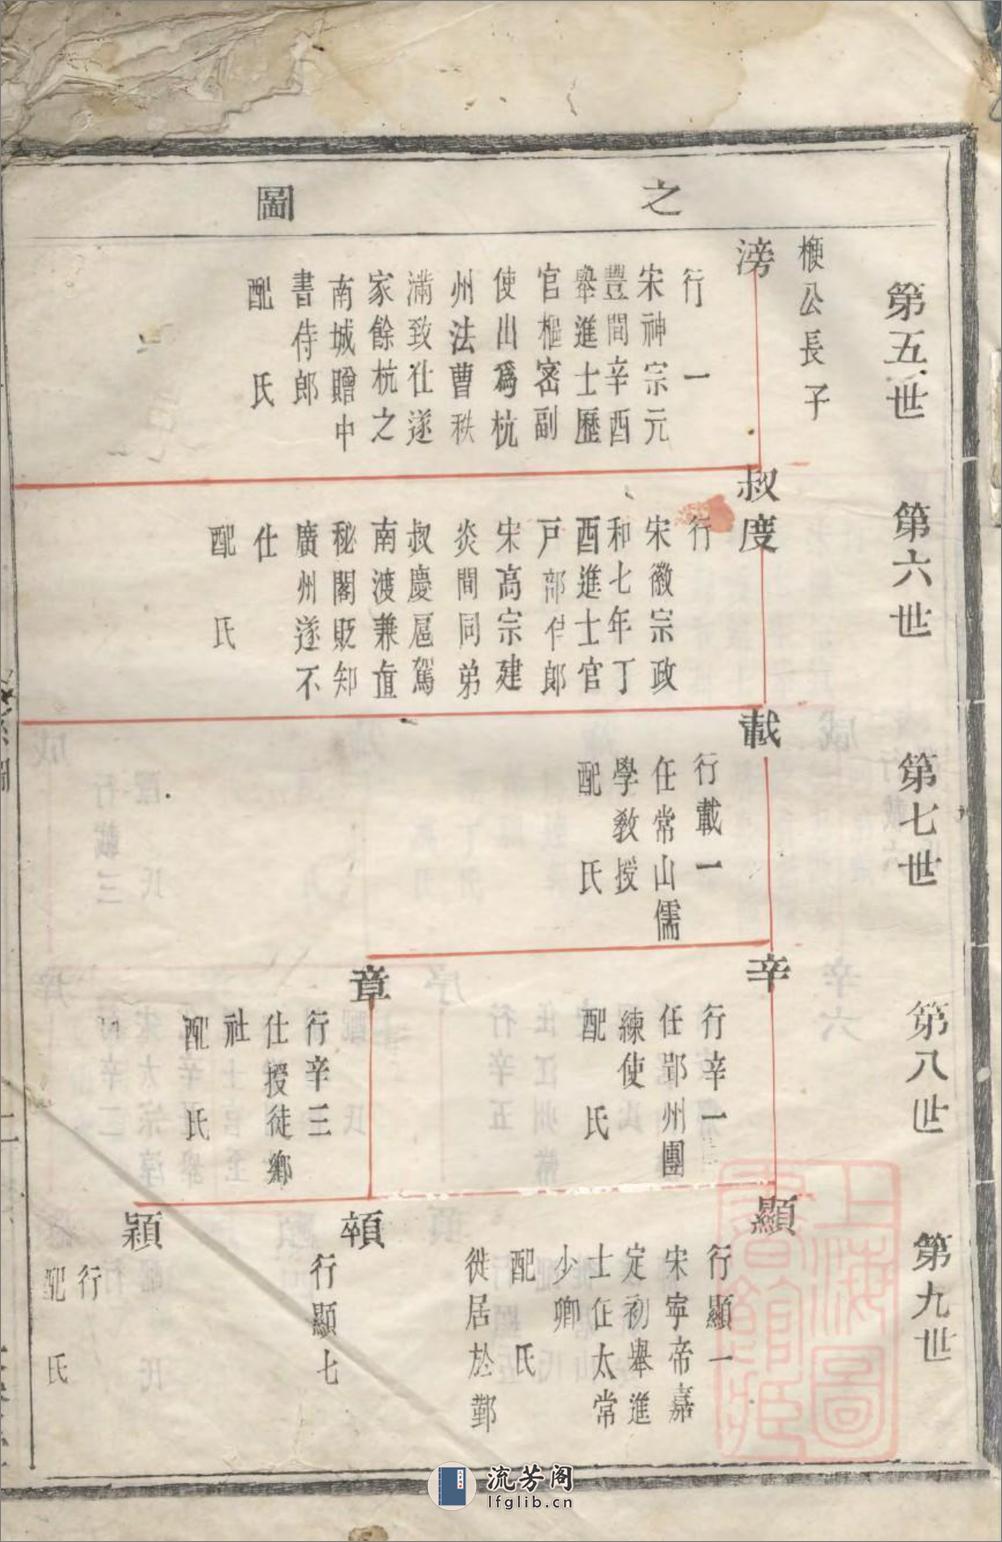 之圖
第五世
楩公長子
滂
行一
宋神宗元
豐間辛酉
舉進士歷
官樞密副
使出爲杭
州法曹秩
滿致仕遂
家餘杭之
南城贈中
書侍郎
配氏
第六世
叔度
行
宋徽宗政
和七年丁
酉進士官
戸部侍郎
宋高宗建
炎間同弟
叔慶扈駕
南渡兼直
秘閣貶知
廣州遂不
仕
配氏
第七世
載
行載一
任常山儒
學教授
配氏
第八世
辛
行辛一
任郢州團
練使
配氏
章
行辛三
仕授徒鄉
社
配氏
第九世
顯
行顯一
宋寧帝嘉
定初舉進
士任太常
少卿
配氏
徙居於鄞
顇
行顯七
穎
行
配氏
上海圖書館藏
流芳阁
lfglib.cn